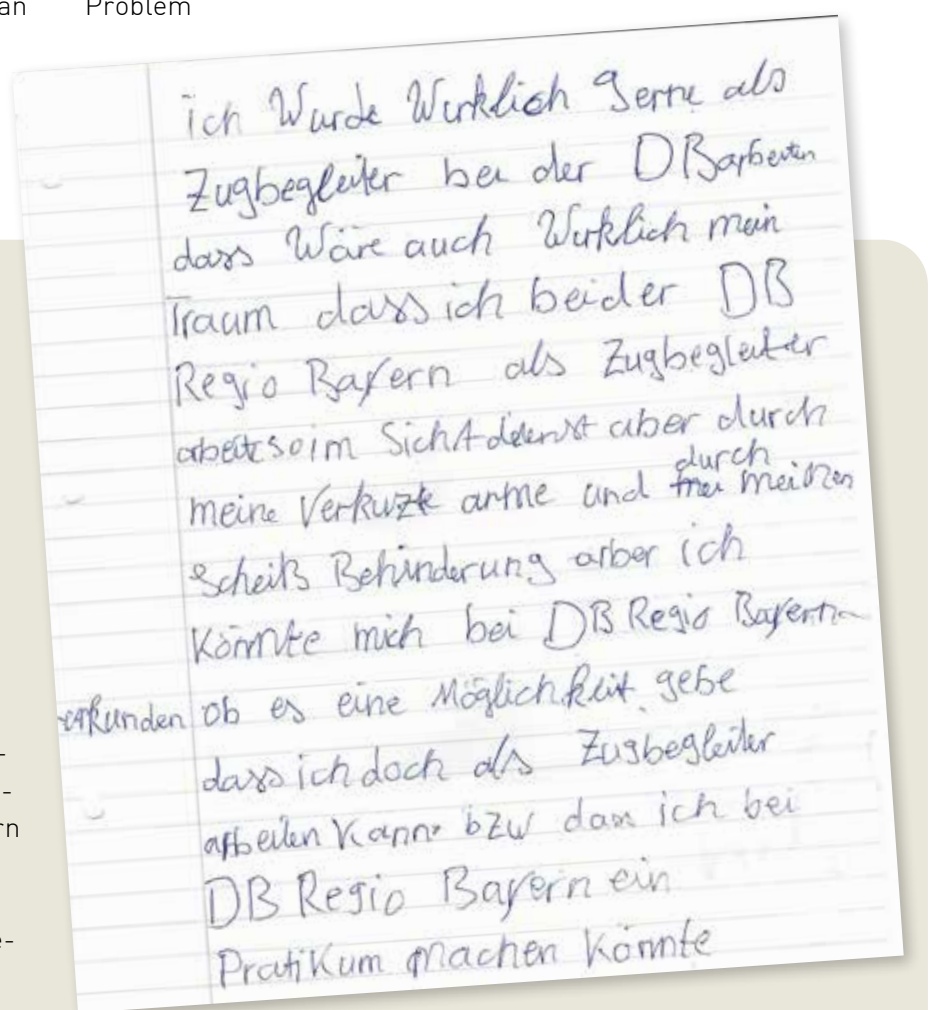 an Problem
ich Wurde Wirklich Gerne als
Zugbegleiter bei der DB arbeiten
dass Wäre auch Wirklich mein
Traum dass ich bei der DB
Regio Bayern als Zugbegleiter
arbeite so im aber durch
meine Verkuzte arme und durch meinen
Scheiß Behinderung arber ich
Könnte mich bei DB Regio Bayern
erkunden ob es eine Möglichkeit gebe
dass ich doch als Zugbegleiter
arbeiten Kann bzw dass ich bei
rn
DB Regio Bayern ein
e-
Pratikum machen Könnte